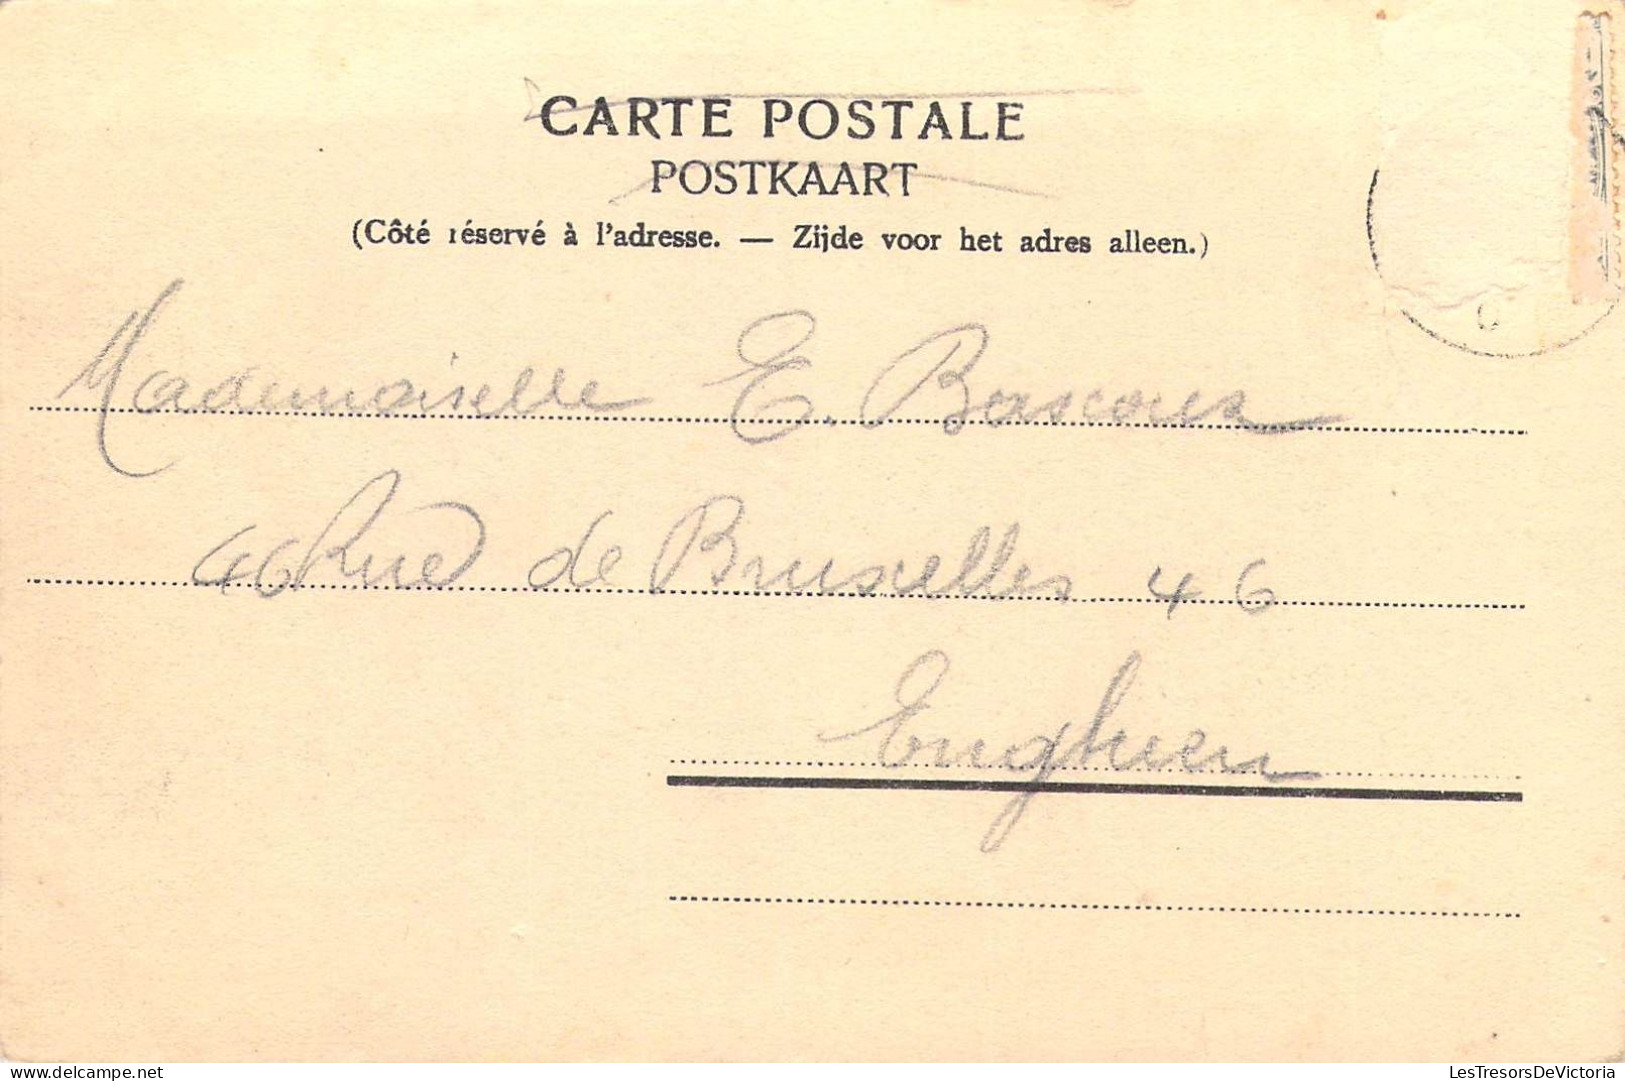 CARTE POSTALE
POSTKAART
(Côté réservé à l'adresse. — Zijde voor het adres alleen.)
Mademoiselle E.
46 Rue de Bruxelles 46
Enghien
LesTresorsDeVictoria